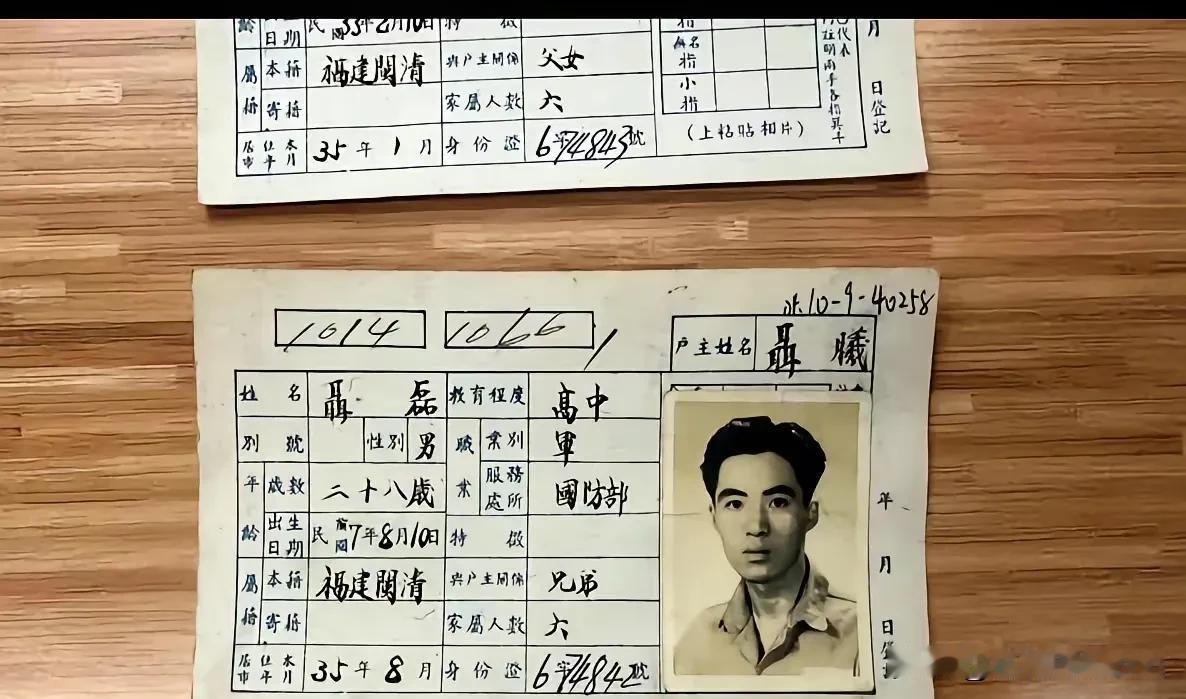 日期 民國35年8月10日 特徵
本籍 福建閩清 與戶主關係 父女
屬籍
寄籍 家屬人數 六
35年1月 身份證 6字74843號
無名指
小指
(上粘貼相片)
月
日登記
爪.10-9-40258
1014 1066
戶主姓名 聶曦
姓名 聶磊 教育程度 高中
別號 性別 男 職業 業別 軍
年齡 歲數 二十八歲 服務處所 國防部
出生日期 民國7年8月10日 特徵
屬籍 本籍 福建閩清 與戶主關係 兄弟
寄籍 家屬人數 六
35年8月 身份證 6字74842號
年
月
日登記